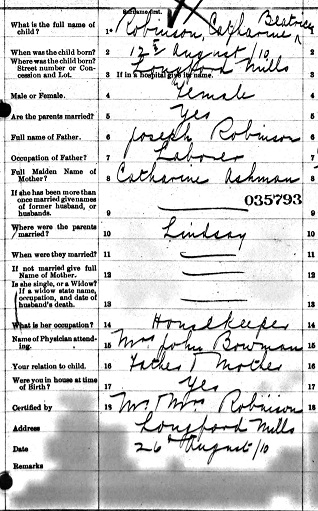 Surname first.
What is the full name of child? 1 Robinson, Catharine Beatrice
When was the child born? 2 12th August /10
Where was the child born? Street number or Concession and Lot. 3 If in a hospital give its name. Longford Mills 3
Male or Female. 4 Female 4
Are the parents married? 5 Yes 5
Full name of Father. 6 Joseph Robinson 6
Occupation of Father? 7 Laborer 7
Full Maiden Name of Mother? 8 Catharine Ashman 8
If she has been more than once married give names of former husband, or husbands. 9 035793
Where were the parents married? 10 Lindsay 10
When were they married? 11 11
If not married give full Name of Mother. 12 12
Is she single, or a Widow? If a widow state name, occupation, and date of husband's death. 13 13
What is her occupation? 14 Housekeeper 14
Name of Physician attending. 15 Mrs John Bowman 15
Your relation to child. 16 Father & Mother 16
Were you in house at time of Birth? 17 Yes 17
Certified by 18 Mr. Mrs Robinson 18
Address Longford Mills
Date 26th August /10
Remarks